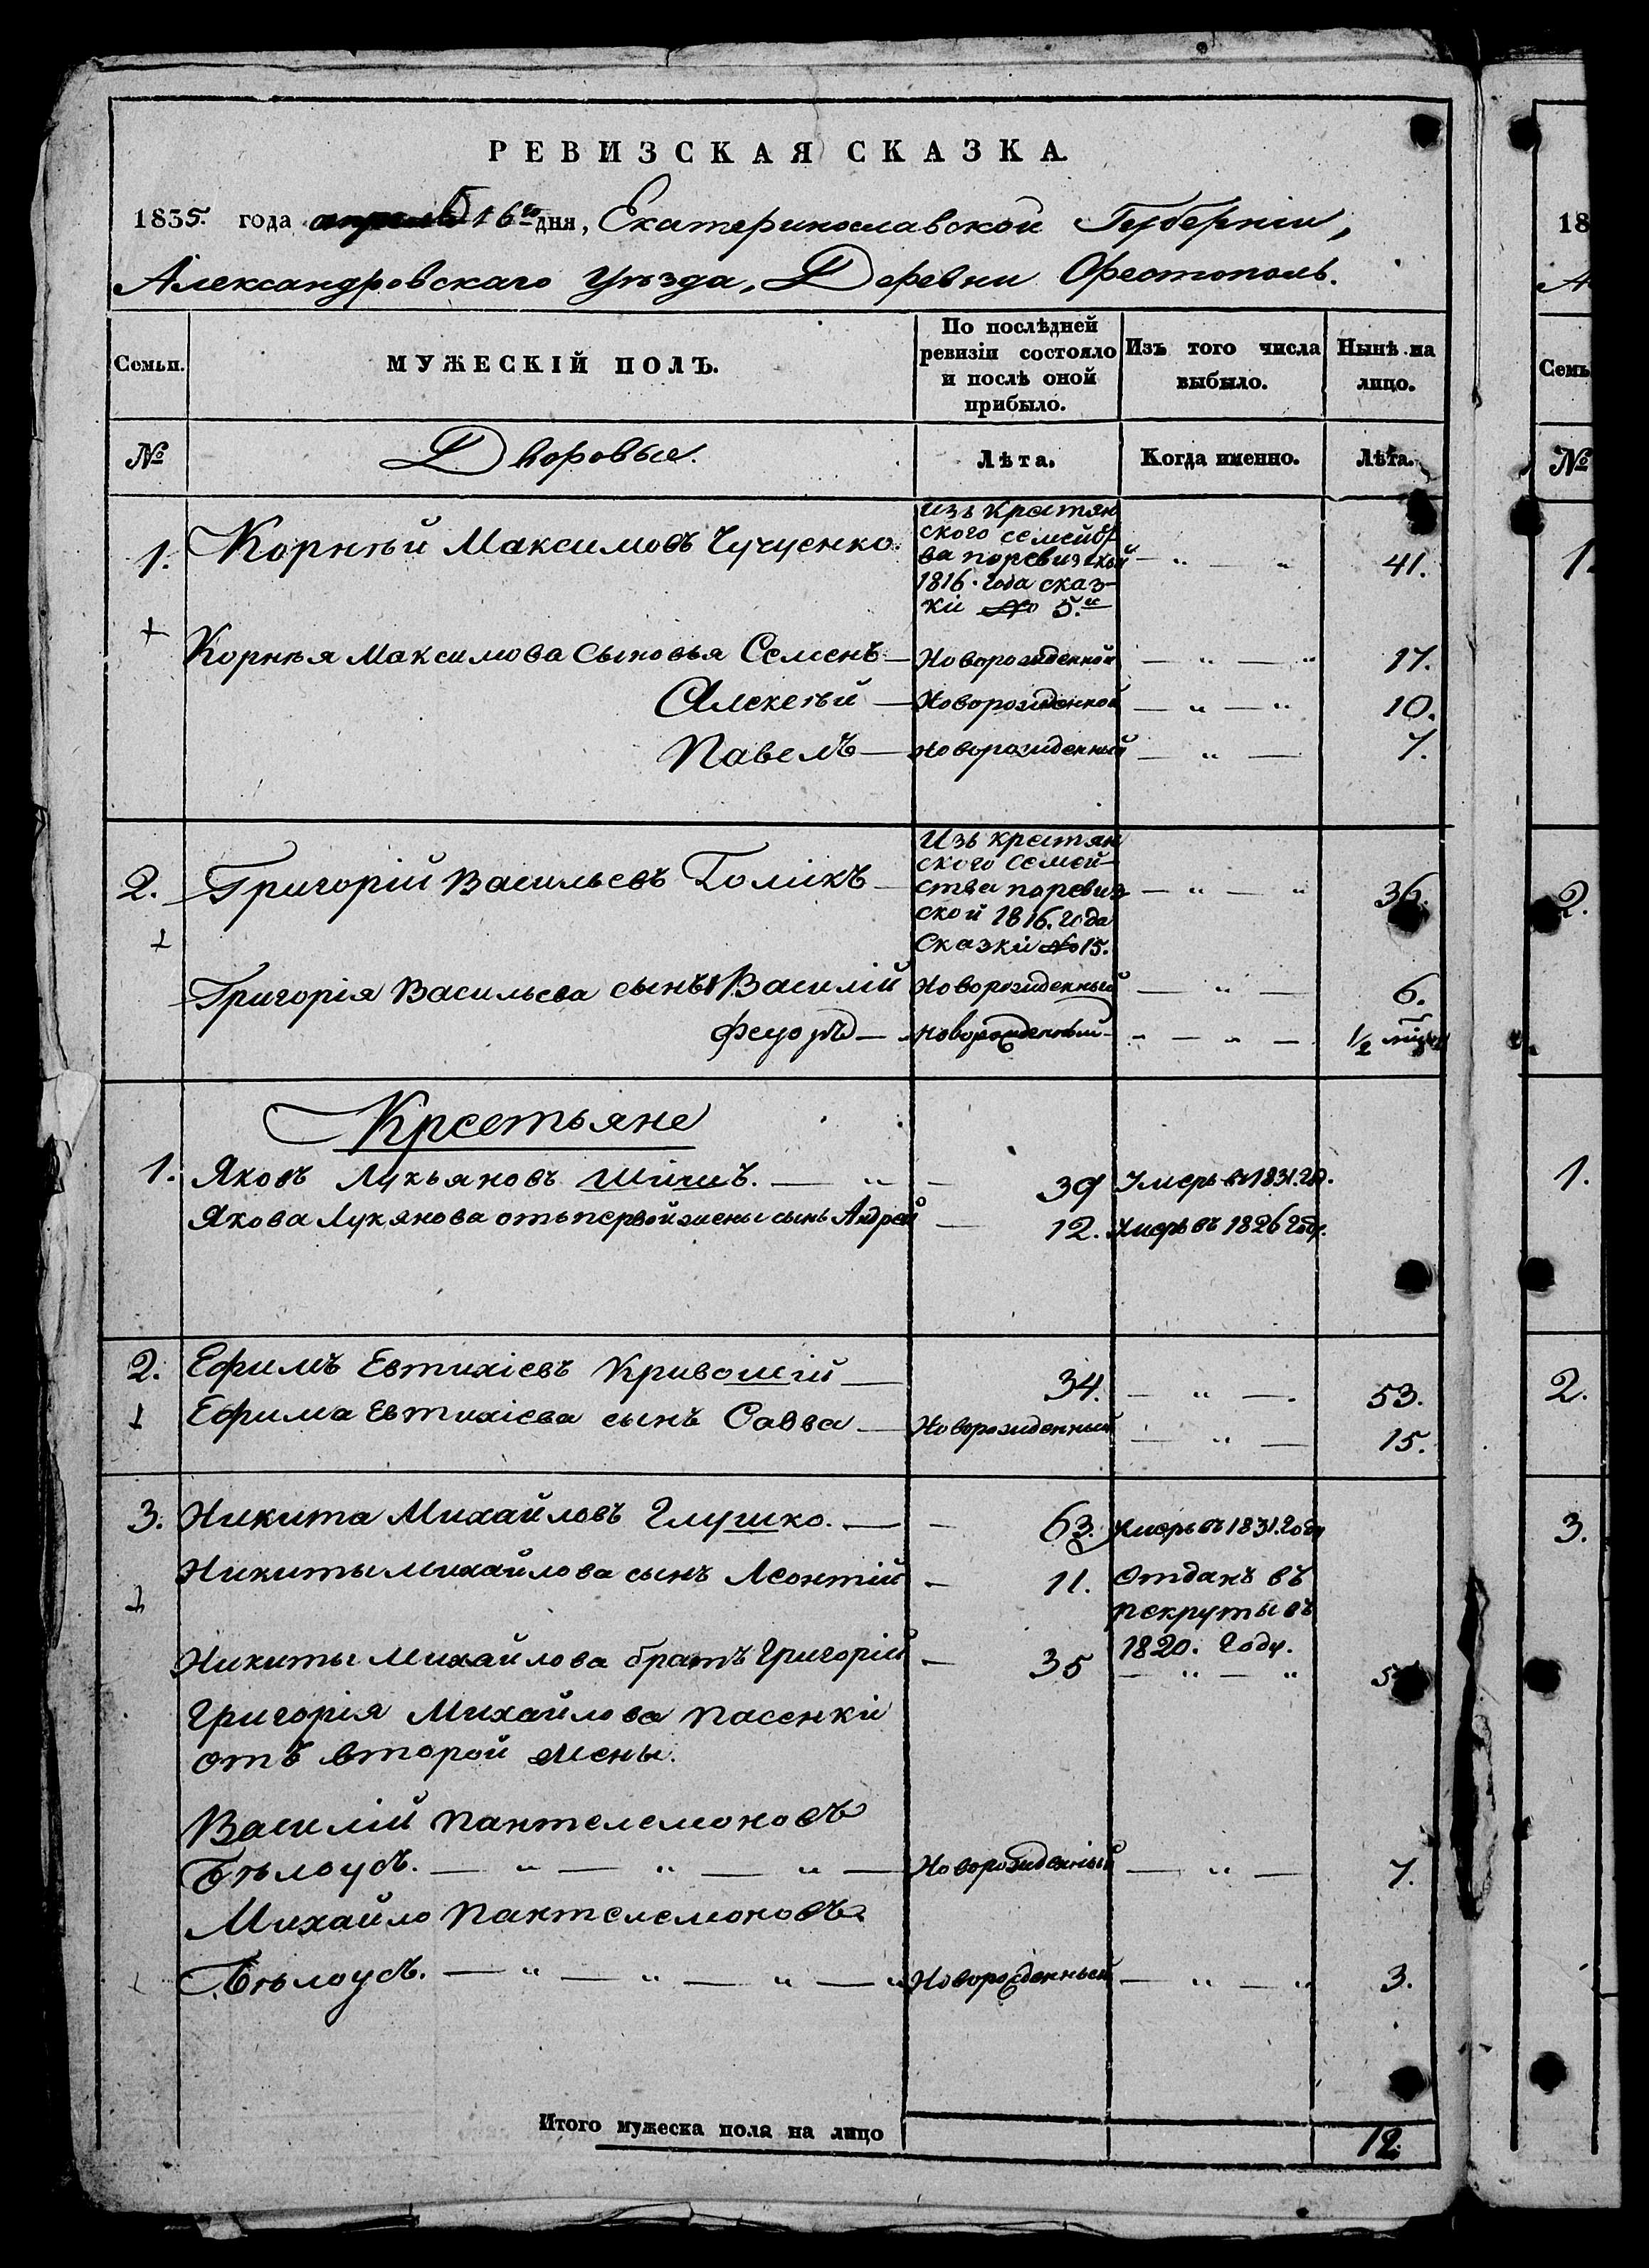 РЕВИЗСКАЯ СКАЗКА
1835. года апреля 16го дня, Екатеринославской Губерніи,
Александровскаго уѣзда, Деревни Орестополь.
Семьи.
МУЖЕСКІЙ ПОЛЪ.
По послѣдней ревизіи состояло и послѣ оной прибыло.
Изъ того числа выбыло.
Нынѣ на лицо.
№ Дворовые. Лѣта. Когда именно. Лѣта.
1. Корнѣй Максимовъ Чучуенко. — " — " 41.
Изъ крестян
ского семейст
ва по ревизской
1816. года сказ-
ки № 5.й
Корнѣя Максимова сыновья Семенъ — Новорожденной — " — " 17.
Алексѣй — Новорожденной — " — " 10.
Павелъ — Новорожденный — " — 7.
2. Григорій Васильевъ Голикъ — " — " 36.
Изъ крестян
ского семей-
ства по ревиз
ской 1816. года
Сказки № 15.
Григорія Васильева сынъ Василій Новорожденный — " — 6.
Феодоръ — Новорожденный — " — 1/2
Крестьяне
1. Яковъ Лукьяновъ Шишъ. — " — 39 Умеръ въ 1831. го.
Якова Лукянова отъ первой жены сынъ Андрей — 12. Умеръ въ 1826 году.
2. Ефимъ Евтихіевъ Кривошій — 34. — " — 53.
Ефима Евтихіева сынъ Савва — Новорожденный — " — 15.
3. Никита Михайловъ Глушко. — 63. Умеръ въ 1831. году
Никиты Михайлова сынъ Леонтій — 11. Отданъ въ
рекруты въ
1820. году.
Никиты Михайлова братъ Григорій — 35 — " — " 5
Григорія Михайлова пасенки
отъ второй жены.
Василій Пантелемоновъ
Бѣлоусъ. — " — " — " — Новорожденный — " — 7.
Михайло Пантелемоновъ
Бѣлоусъ. — " — " — " — " Новорожденный — " — " 3.
Итого мужеска пола на лицо 12.
18
Семь
№
1.
2.
1.
2.
3.